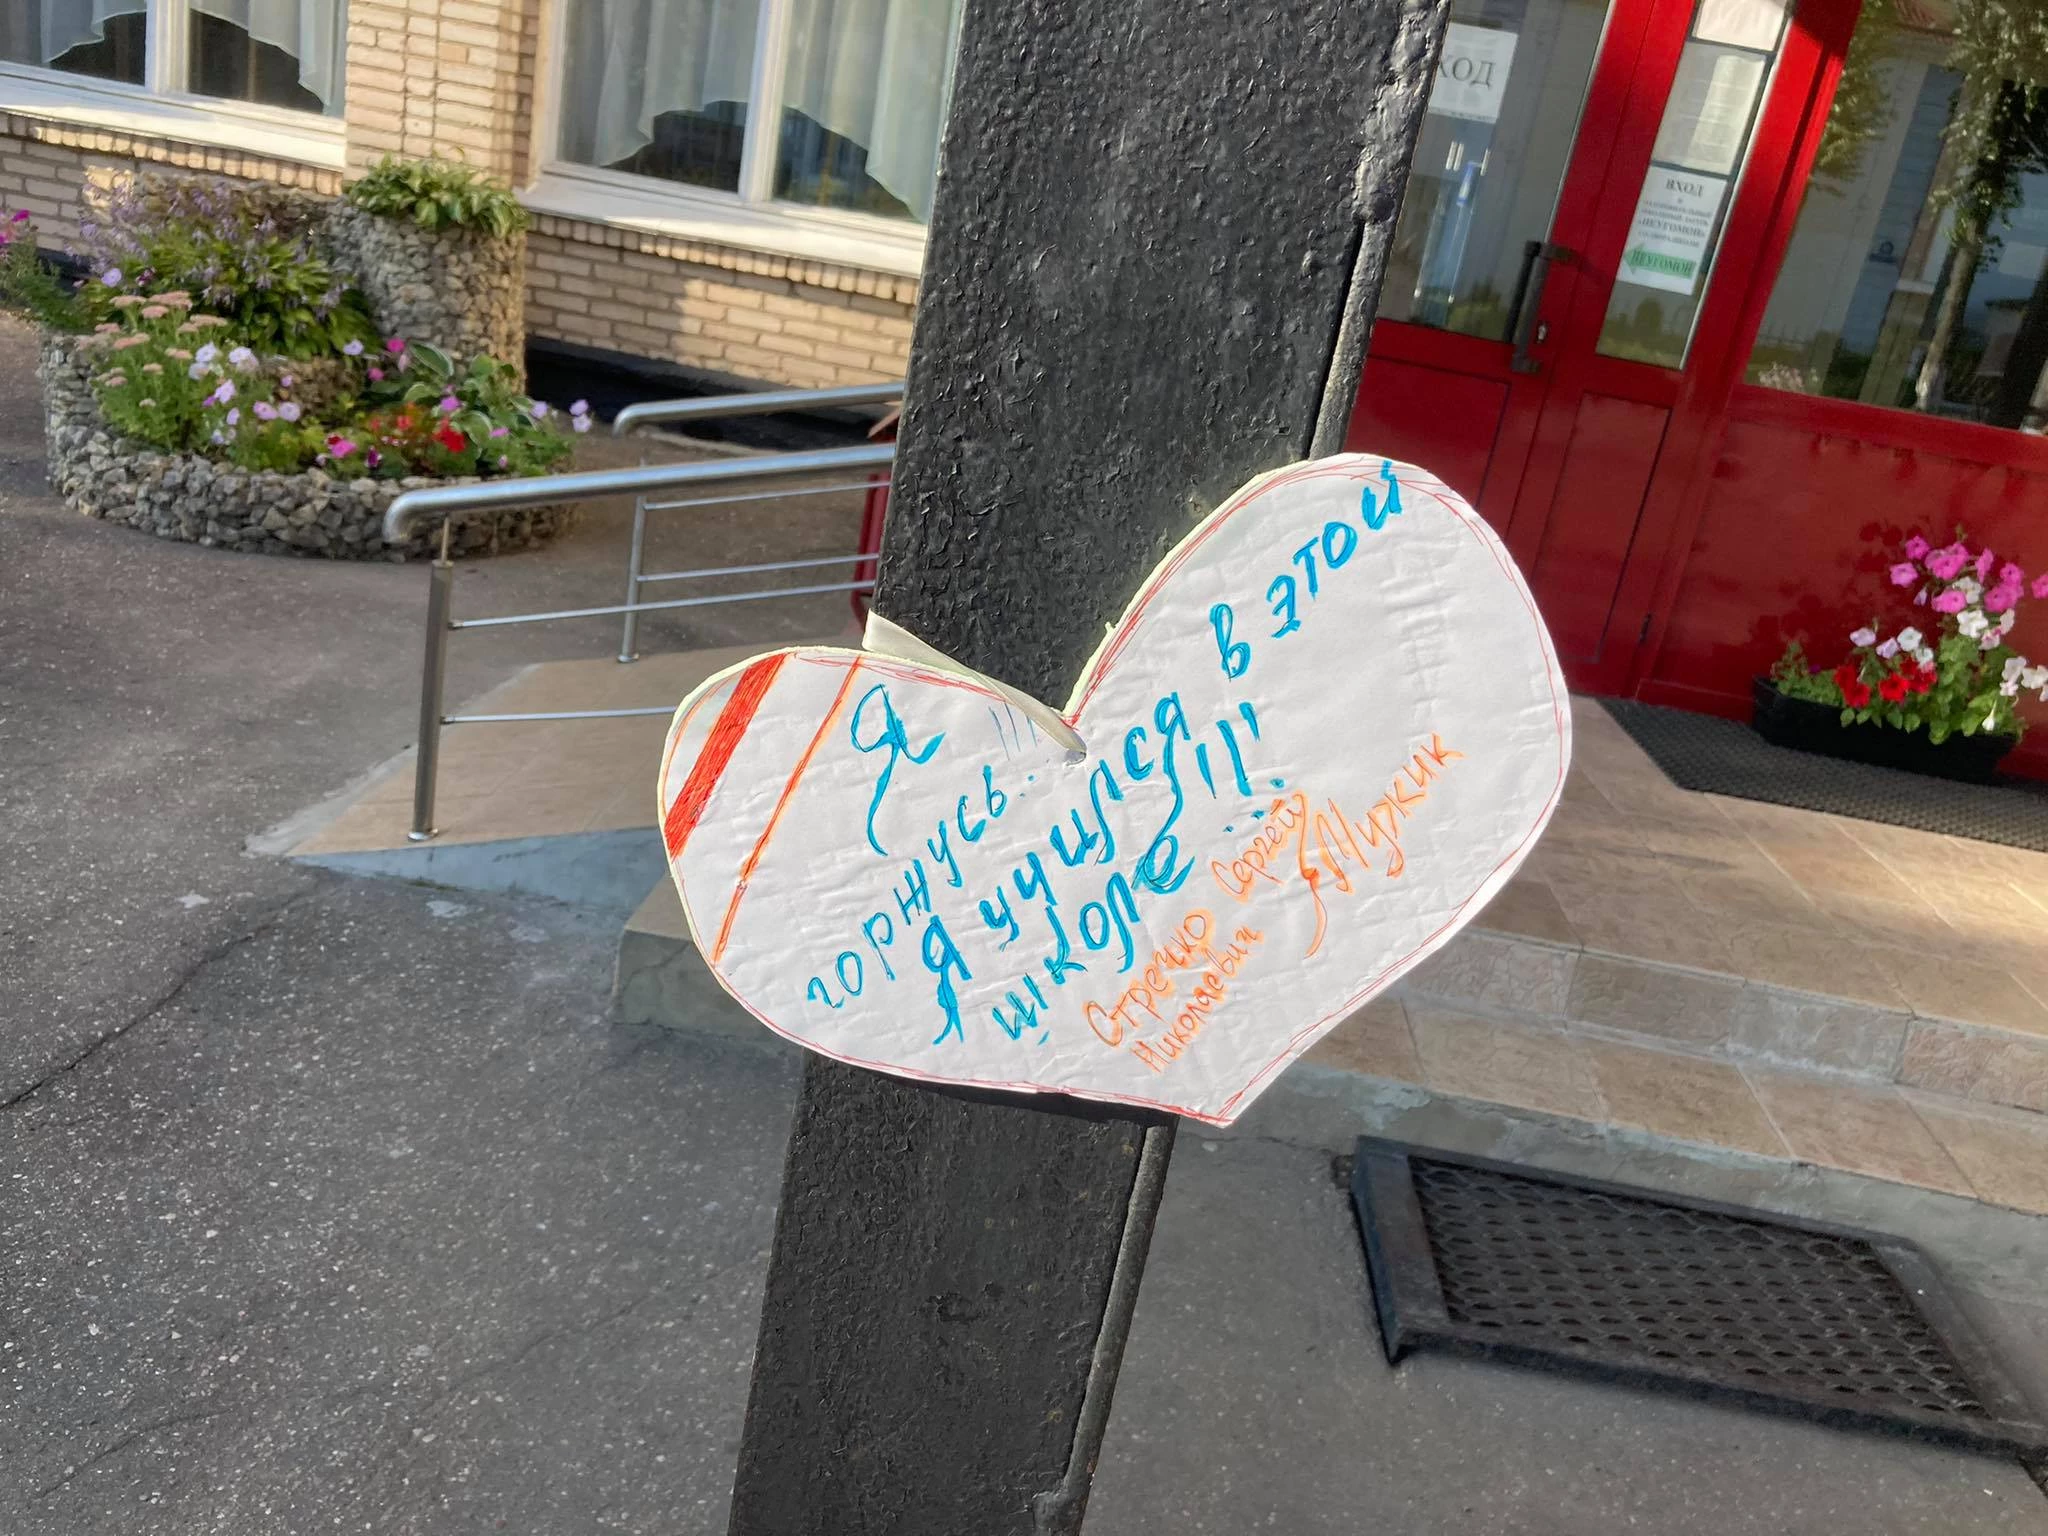 ХОД
ВХОД
В
«НЕУГОМОН»
НЕУГОМОН
Я
горжусь!!!
Я учился в этой
школе!!!
Стречко Сергей
Николаевич
Мужик